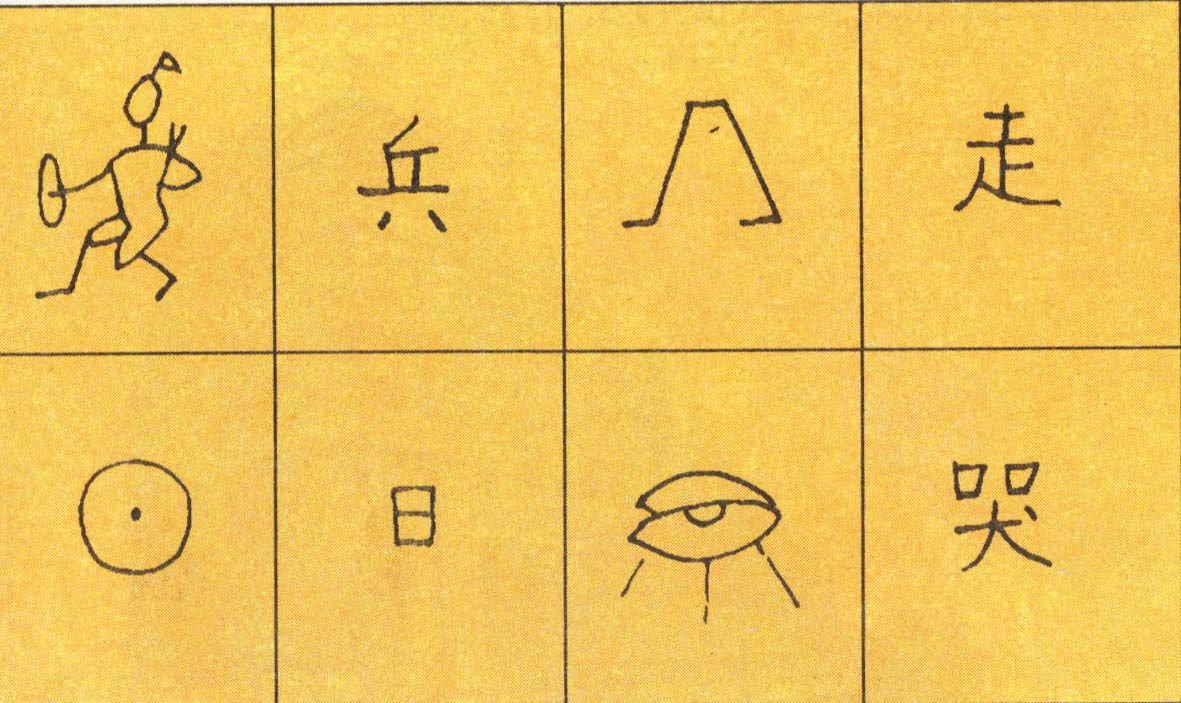 兵 走
日 哭